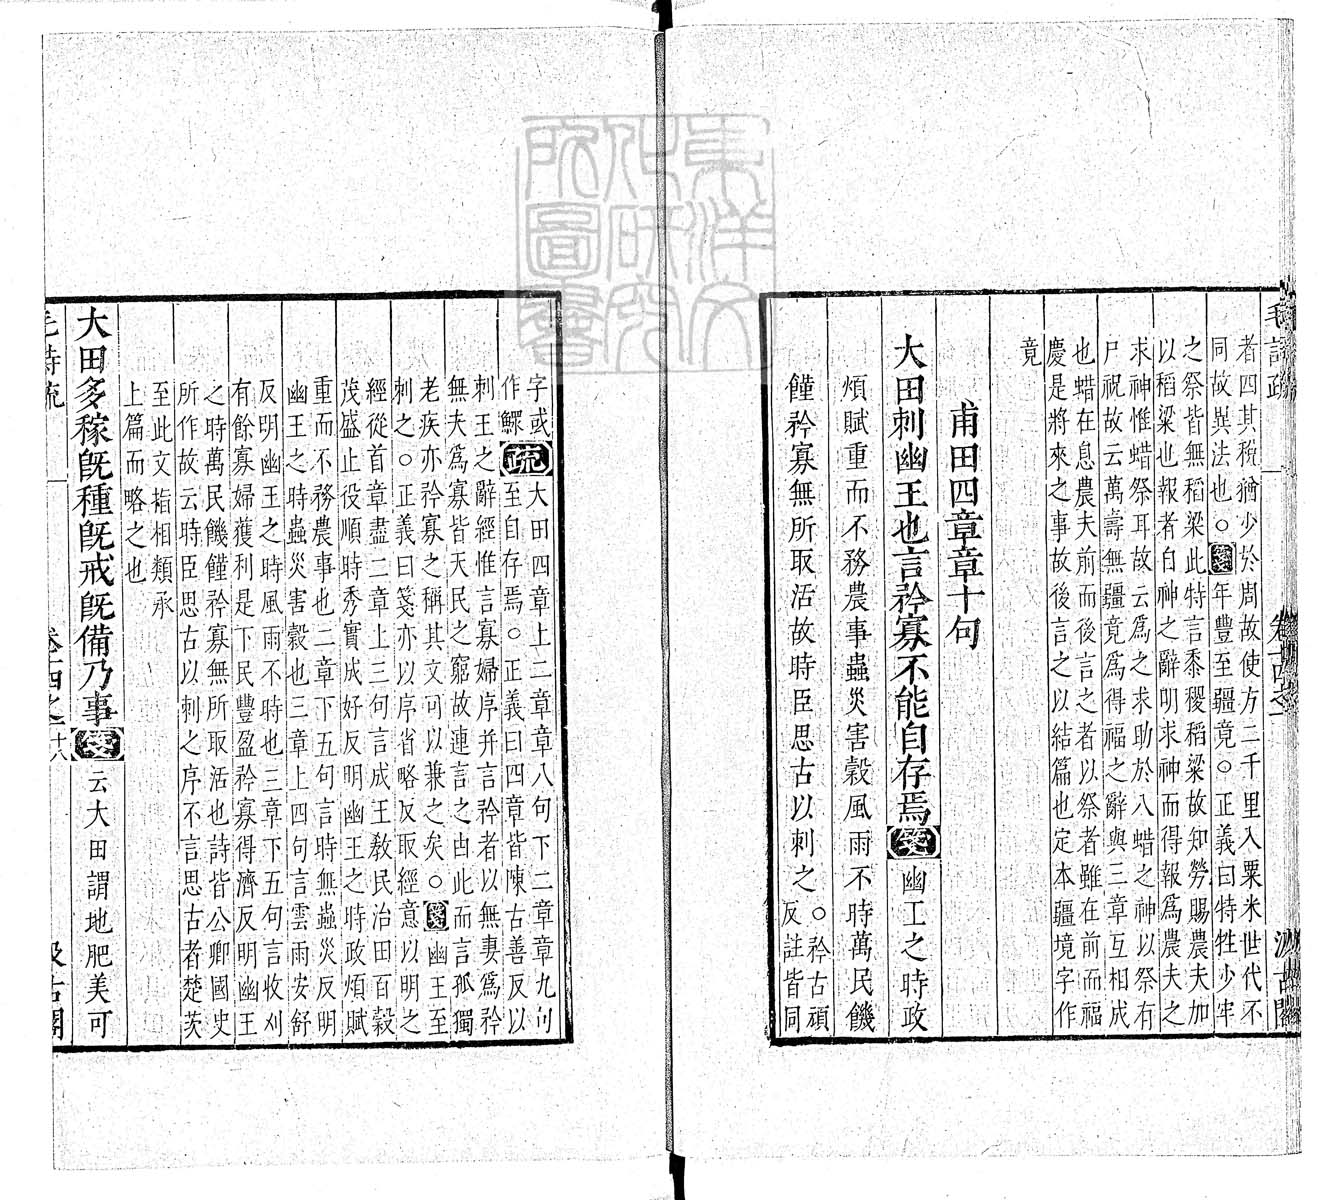 毛詩疏
者四其稅猶少於周故使方二千里入粟米世代不
同故異法也○箋年豐至疆竟○正義曰特牲少牢
之祭皆無稻粱此特言黍稷稻粱故知勞賜農夫加
以稻粱也報者自神之辭明求神而得報為農夫之
求神惟蜡祭耳故云為之求助於八蜡之神以祭有
尸祝故云萬壽無疆竟為得福之辭與三章互相成
也蜡在息農夫前而後言之者以祭者雖在前而福
慶是將來之事故後言之以結篇也定本疆境字作
竟
甫田四章章十句
大田刺幽王也言矜寡不能自存焉箋幽王之時政
煩賦重而不務農事蟲災害穀風雨不時萬民饑
饉矜寡無所取活故時臣思古以刺之○矜古頑
反註皆同
字或
作鰥疏大田四章上二章章八句下二章章九句
至自存焉○正義曰四章皆陳古善反以
刺王之辭經惟言寡婦序并言矜者以無妻為矜
無夫為寡皆天民之窮故連言之由此而言孤獨
老疾亦矜寡之稱其文可以兼之矣○箋幽王至
刺之○正義曰箋亦以序省略反取經意以明之
經從首章盡二章上三句言成王教民治田百穀
茂盛止役順時秀實成好反明幽王之時政煩賦
重而不務農事也二章下五句言時無蟲災反明
幽王之時蟲災害穀也三章上四句言雲雨安舒
反明幽王之時風雨不時也三章下五句言收刈
有餘寡婦獲利是下民豐盈矜寡得濟反明幽王
之時萬民饑饉矜寡無所取活也詩皆公卿國史
所作故云時臣思古以刺之序不言思古者楚茨
至此文指相類承
上篇而略之也
大田多稼既種既戒既備乃事箋云大田謂地肥美可
毛詩疏 卷十四之一 十八 汲古閣